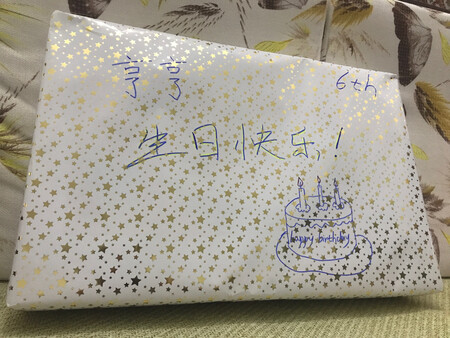 亨亨 6th
生日快乐!
happy birthday